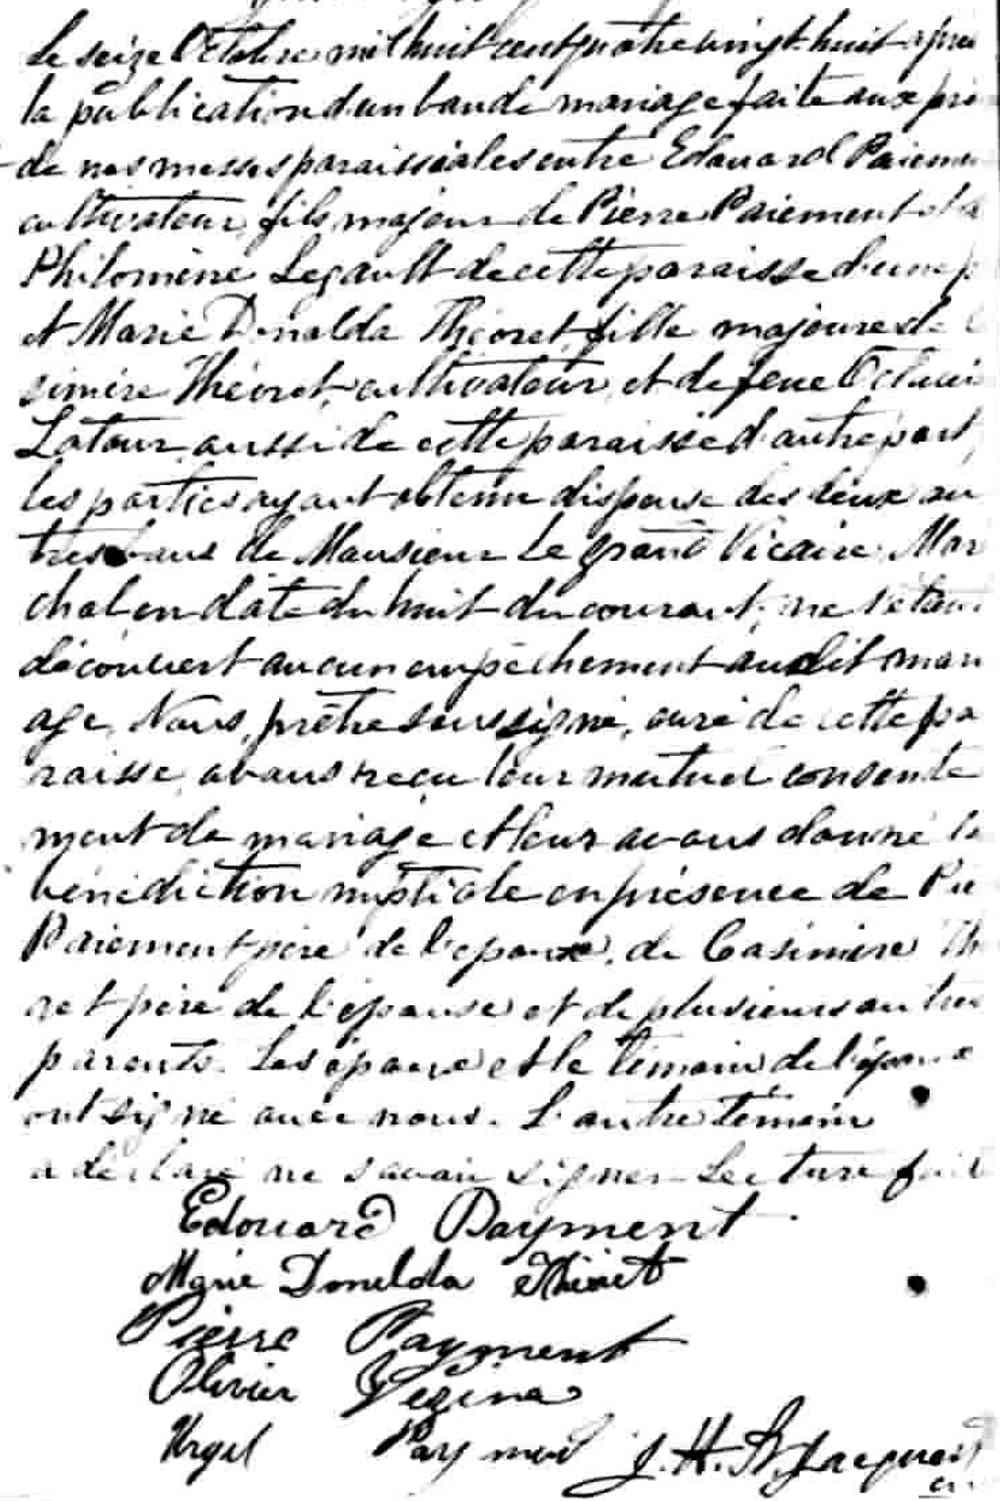 Le seize Octobre mil huit cent quatre vingt-huit après
la publication d'un band de mariage faite aux prô
de nos messes paroissiales entre Edouard Paieme
cultivateur, fils majeur de Pierre Paiement et de
Philomène Legault de cette paroisse d'une p
et Marie Donalda Théoret, fille majeure de C
simire Théoret, cultivateur, et de feue
Latour aussi de cette paroisse d'autre part,
les parties ayant obtenu dispense des deux au
tres bans de Monsieur le grand Vicaire Mar
chal en date du huit du courant, ne s'étant
découvert aucun empêchement au dit mari
age, Nous, prêtre soussigné, curé de cette pa
roisse, avons reçu leur mutuel consente
ment de mariage et leur avons donné la
bénédiction nuptiale en présence de Pie
Paiement père de l'époux, de Casimire Th
ret père de l'épouse et de plusieurs autres
parents. Les époux et le témoin de l'époux
ont signé avec nous. L'autre témoin
a déclaré ne savoir signer. Lecture fait
Edouard Payment
Marie Donelda Théoret
Pierre Payment
Olivier Vezina
Urgel Payment J. H. St. Jacques